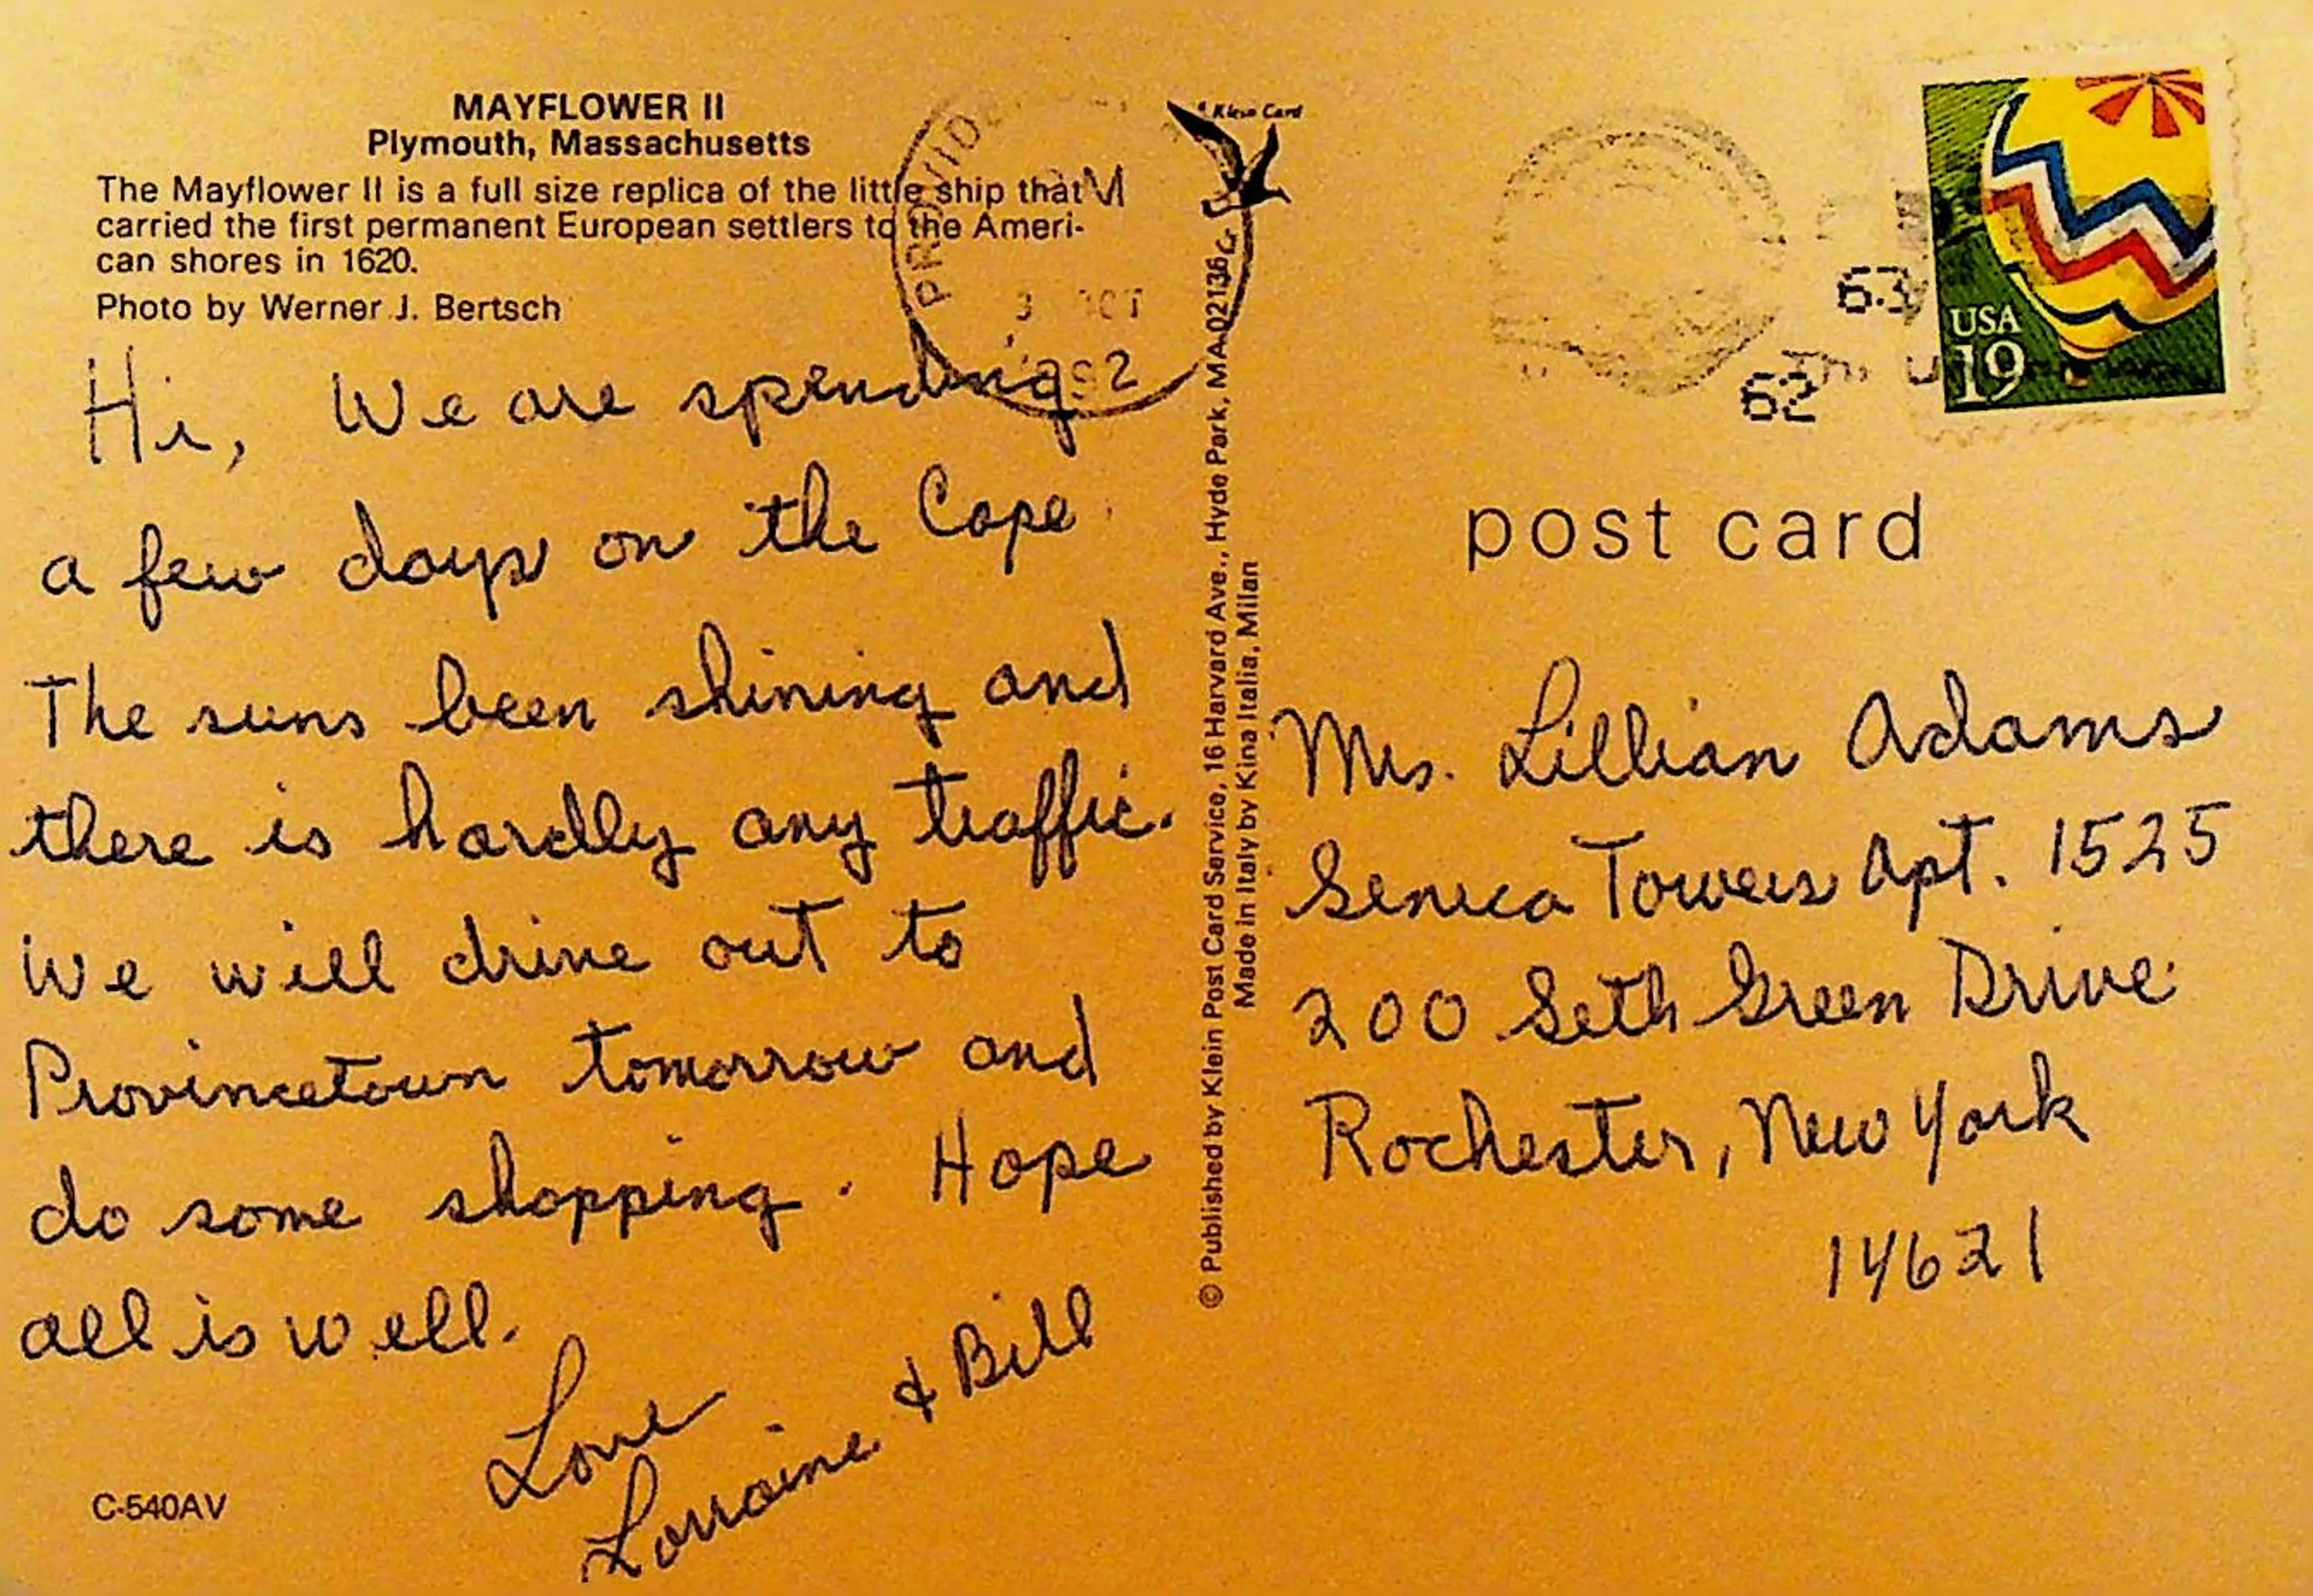 MAYFLOWER II
Plymouth, Massachusetts
The Mayflower II is a full size replica of the little ship that
carried the first permanent European settlers to the Ameri-
can shores in 1620.
Photo by Werner J. Bertsch
Hi, We are spending
a few days on the Cape
The suns been shining and
there is hardly any traffic.
We will drive out to
Provincetown tomorrow and
do some shopping. Hope
all is well.
Love
Lorraine & Bill
C-540AV
PROVID
OCT
1992
Klein Card
© Published by Klein Post Card Service, 16 Harvard Ave., Hyde Park, MA 02136
Made in Italy by Kina Italia, Milan
63
62
USA
19
post card
Mrs. Lillian Adams
Seneca Towers Apt. 1525
200 Seth Green Drive
Rochester, New York
14621